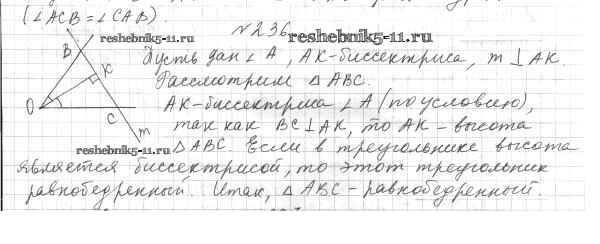 (∠ACB = ∠CAB).
№236
reshebnik5-11.ru
reshebnik5-11.ru
B
K
O
C
m
Пусть дан ∠A, AK-биссектриса, m ⊥ AK.
Рассмотрим △ABC.
AK-биссектриса ∠A (по условию),
так как BC ⊥ AK, то AK - высота
reshebnik5-11.ru
△ABC. Если в треугольнике высота
является биссектрисой, то этот треугольник
равнобедренный. Итак, △ABC - равнобедренный.